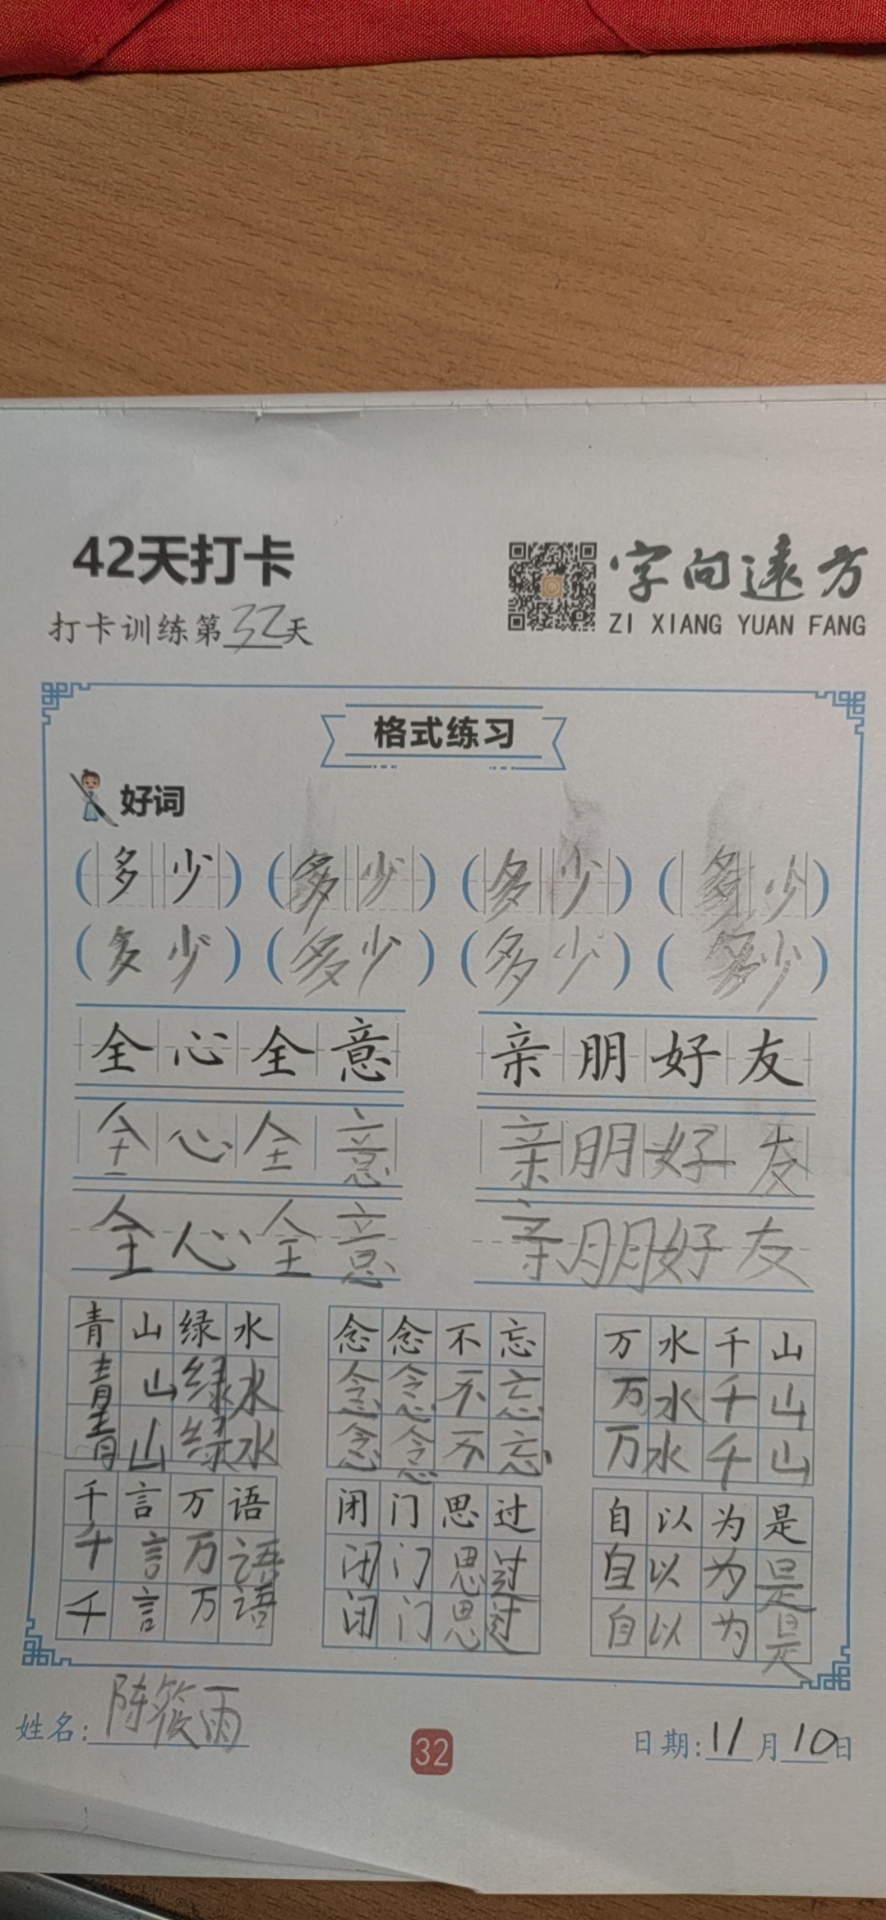 42天打卡
字向遠方
打卡训练第32天
ZI XIANG YUAN FANG
格式练习
好词
(多少) (多少) (多少) (多少)
(多少) (多少) (多少) (多少)
全心全意 亲朋好友
全心全意 亲朋好友
全心全意 亲朋好友
青山绿水 念念不忘 万水千山
青山绿水 念念不忘 万水千山
青山绿水 念念不忘 万水千山
千言万语 闭门思过 自以为是
千言万语 闭门思过 自以为是
千言万语 闭门思过 自以为是
姓名:陈筱雨 32 日期:11月10日